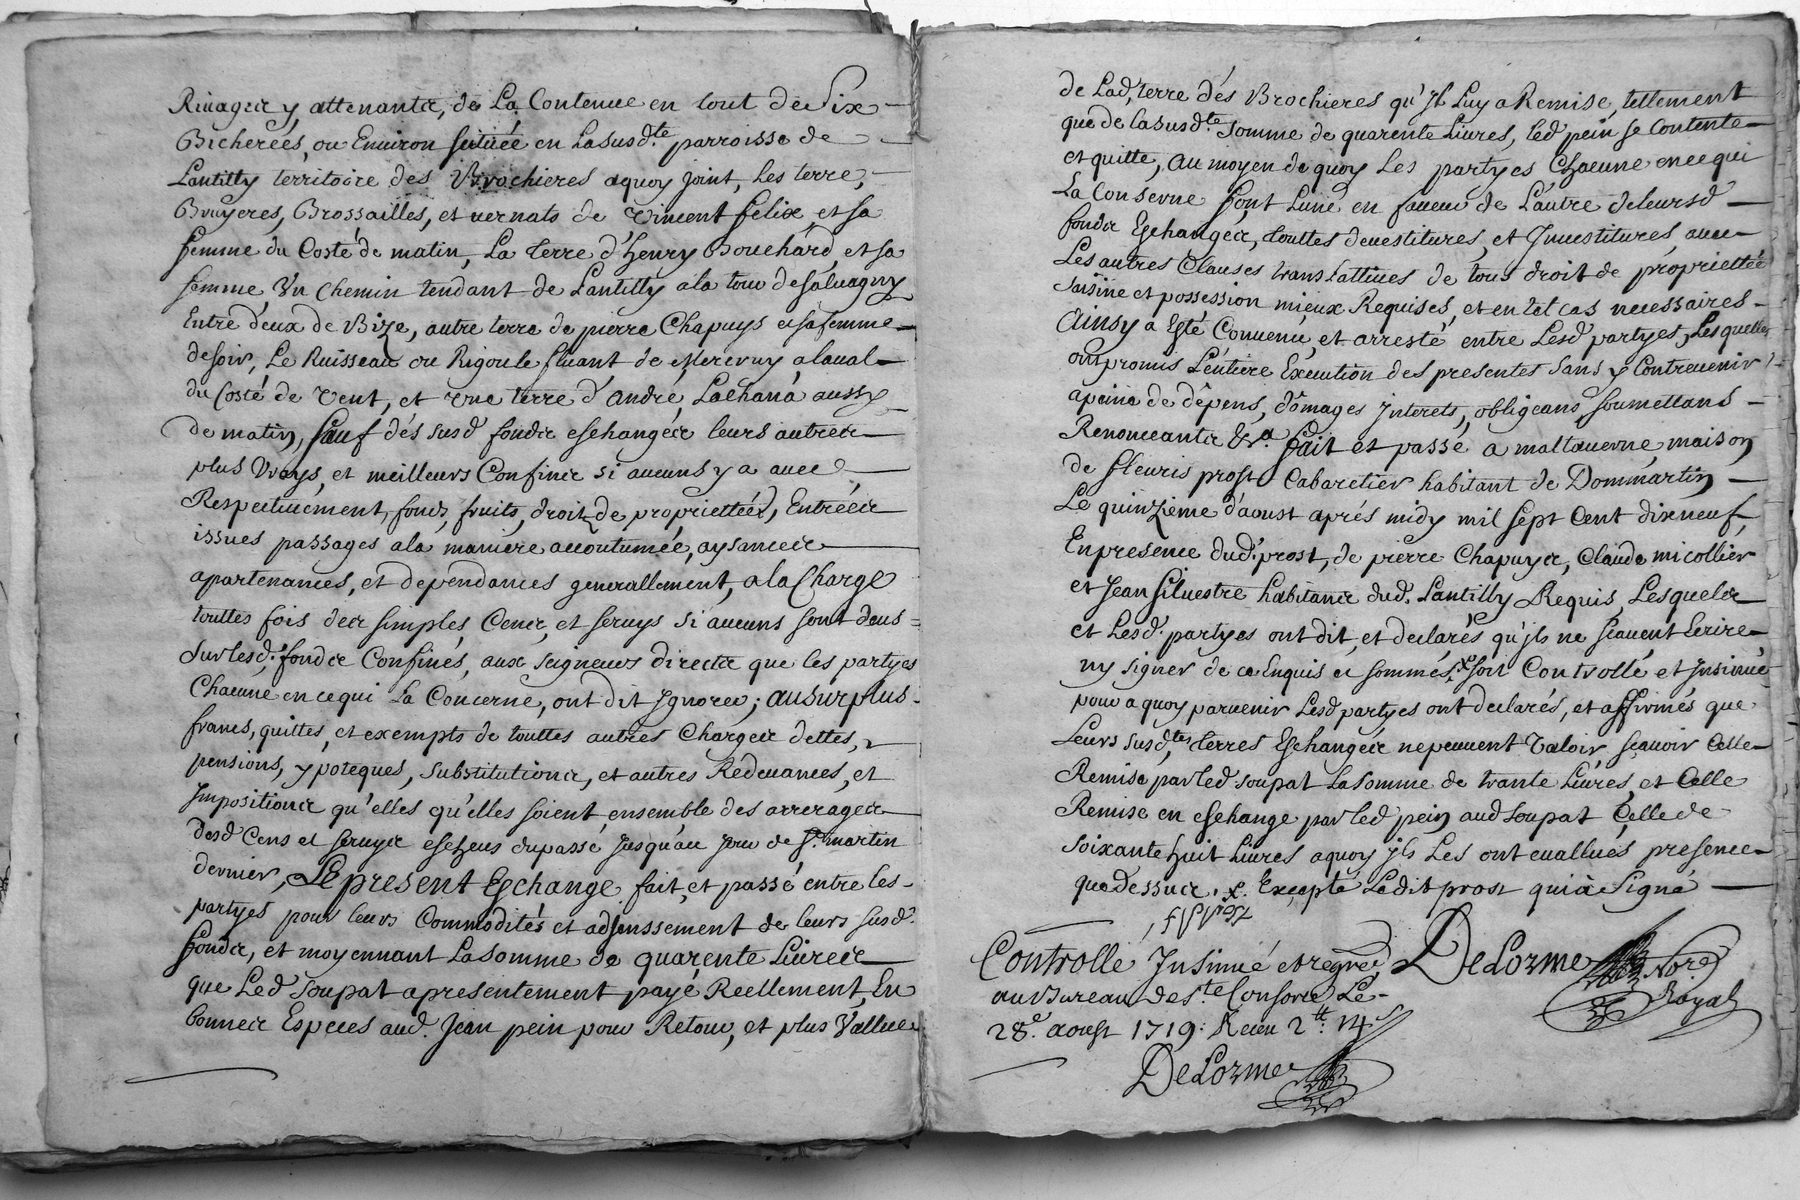 Rivages y attenants, de La Contenue en tout de Six
Bicherées, ou Environ scituée en Lasusd.te parroisse de
Lantilly territoire des Brochieres aquoy joint, Les terre,
Bruyeres, Brossailles, et vernats de Vincent felix et sa
femme du Costé de matin, La terre d'henry Bouchard, et sa
femme, Vn Chemin tendant de Lantilly a la tour de salvagny
Entre deux de Bize, autre terre de pierre Chapuys et sa femme
de soir, Le Ruisseau ou Rigoule fluant de a laual
du Costé de Vent, et vne terre d'andré Lachana aussy
de matin, sauf dés susd fonds eschanges leurs autres
plus Vrays, et meilleurs Confins si aucuns y a avec
Respectiuement, fonds, fruits, droits de propriettées, Entrées
issues passages a la maniere accoutumée, aysances
apartenances, et dependances generallement, a la Charge
touttes fois des simples Cens, et seruys si aucuns sont deus
sur lesd. fonds Confinés, aux seigneurs directs que les partyes
Chacune en cequi La Concerne, ont dit Ignorer; au surplus
francs, quittes, et exempts de touttes autres Charges dettes,
pensions, ypoteques, substitutions, et autres Redeuances, et
Impositions qu'elles qu'elles soient, ensemble des arrerages
desd Cens et seruys escheus du passé jusqu'au jour de St. martin
dernier, Le present Eschange fait, et passé entre les
partyes pour leurs Commodités et adjenssement de leurs susd.
fonds, et moyennant La somme de quarente Liures
que Led soupat a presentement payé Reellement, En
bonnes Especes aud. Jean pein pour Retour, et plus Vallue
de Lad. terre dés Brochieres qu'Jl Luy a Remise, tellement
que de lasusd.te somme de quarente Liures, led pein se Contente
et quitte, au moyen de quoy Les partyes Chacune en ce qui
La Conserne font Lune en faueur de L'autre de leursd
fonds Eschanges, touttes deuestitures, et Jnuestitures, auec
Les autres Clauses translattiues de tous droit de propriettée
saisine et possession mieux Requises, et en tel cas necessaires
Ainsy a Esté Conuenu, et arresté entre Lesd partyes, Lesquelles
ont promis L'entiere Execution des presentes sans y Contreuenir
a peine de dêpens, dômages Jnterets, obligeans soumettans
Renonceants &ra. fait et passé a maltauerne, maison
de fleuris prost Cabaretier habitant de Dommartin
Le quinzieme d'aoust aprés midy mil sept Cent dixneuf,
En presence dud. prost, de pierre Chapuys, Claude micollier
et Jean siluestre habitans dud. Lantilly Requis, Lesquels
et Lesd. partyes ont dit, et declarés qu'jls ne scauent Lcrire
ny signer de ce Enquis et sommés, x soit Controllé et Jnsinué
pour a quoy paruenir Lesd partyes ont declarés, et affirmés que
Leurs susd.tes terres Eschangés ne peuuent Valoir, scauoir Celle
Remise par led. soupat La somme de trante Liures, et Celle
Remise en eschange par led pein aud soupat Celle de
soixante huit Liures a quoy jls Les ont euallués presence
que dessus. x. Excepté Ledit prost qui à signé
f prost
Controllé Jnsinué et regrée
au Bureau de Ste Consorce Le
28e. aoust 1719. Receu 2tt. 14s
DeLorme
DeLorme Nore
Royal